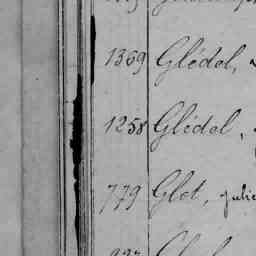 1369 Glédel,
1258 Glédel,
779 Glet, julie